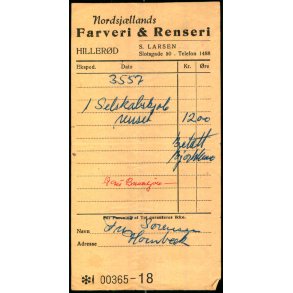 Nordsjællands
Farveri & Renseri
HILLERØD
S. LARSEN
Slotsgade 50 . Telefon 1488
Eksped. Dato Kr. Øre
3557
1 Selskabskjole
renset 1200
betalt
For Farvning af Tøj garanteres ikke.
Navn Fru Sørensen
Adresse Hornbæk
✻ 00365-18